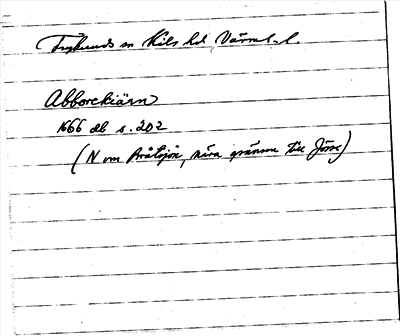 Frykeruds sn Kils hd Värml. l.
Abborekiärn
1666 db s. 202
(N om Bråtsjön, nära gränsen till Jösse)